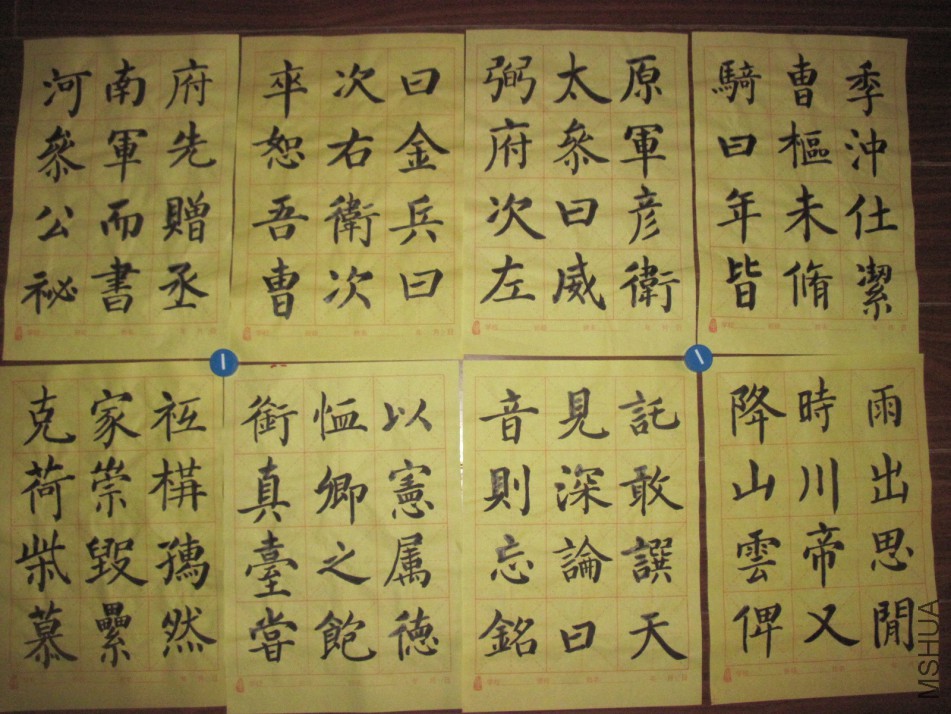 河南府
參軍先
公而贈
祕書丞
卒次曰
恕右金
吾衛兵
曹次曰
弼太原
府參軍
次曰彥
左威衛
騎曹季
曰樞沖
年未仕
皆脩潔
克家祗
荷崇構
柴毀孺
慕纍然
銜恤以
真卿憲
臺之属
嘗飽德
音見託
則深敢
忘論譔
銘曰天
降時雨
山川出
雲帝思
俾又閒
MSHUA